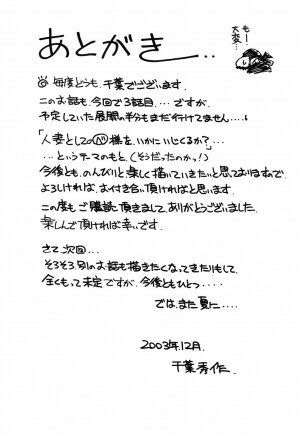 あとがき...
もー大変...
毎度どうも、千葉でございます。
このお話も、今回で3話目...ですが、
予定していた展開の半分もまだ行けてません....。
「人妻としての様を、いかにいじくるか?...
...というテーマのもと、(そうだったのかっ!)
今後とも、のんびりと楽しく描いていきたいと思っておりますので、
よろしければ、お付き合い頂ければと思います。
この度も、ご購読頂きまして、ありがとうございました。
楽しんで頂ければ幸いです。
さて、次回...
そろそろ別のお話も描きたくなってきたりもして、
全くもって未定ですが、今後ともひとつ....
では、また夏に....
2003年12月.
千葉秀作.